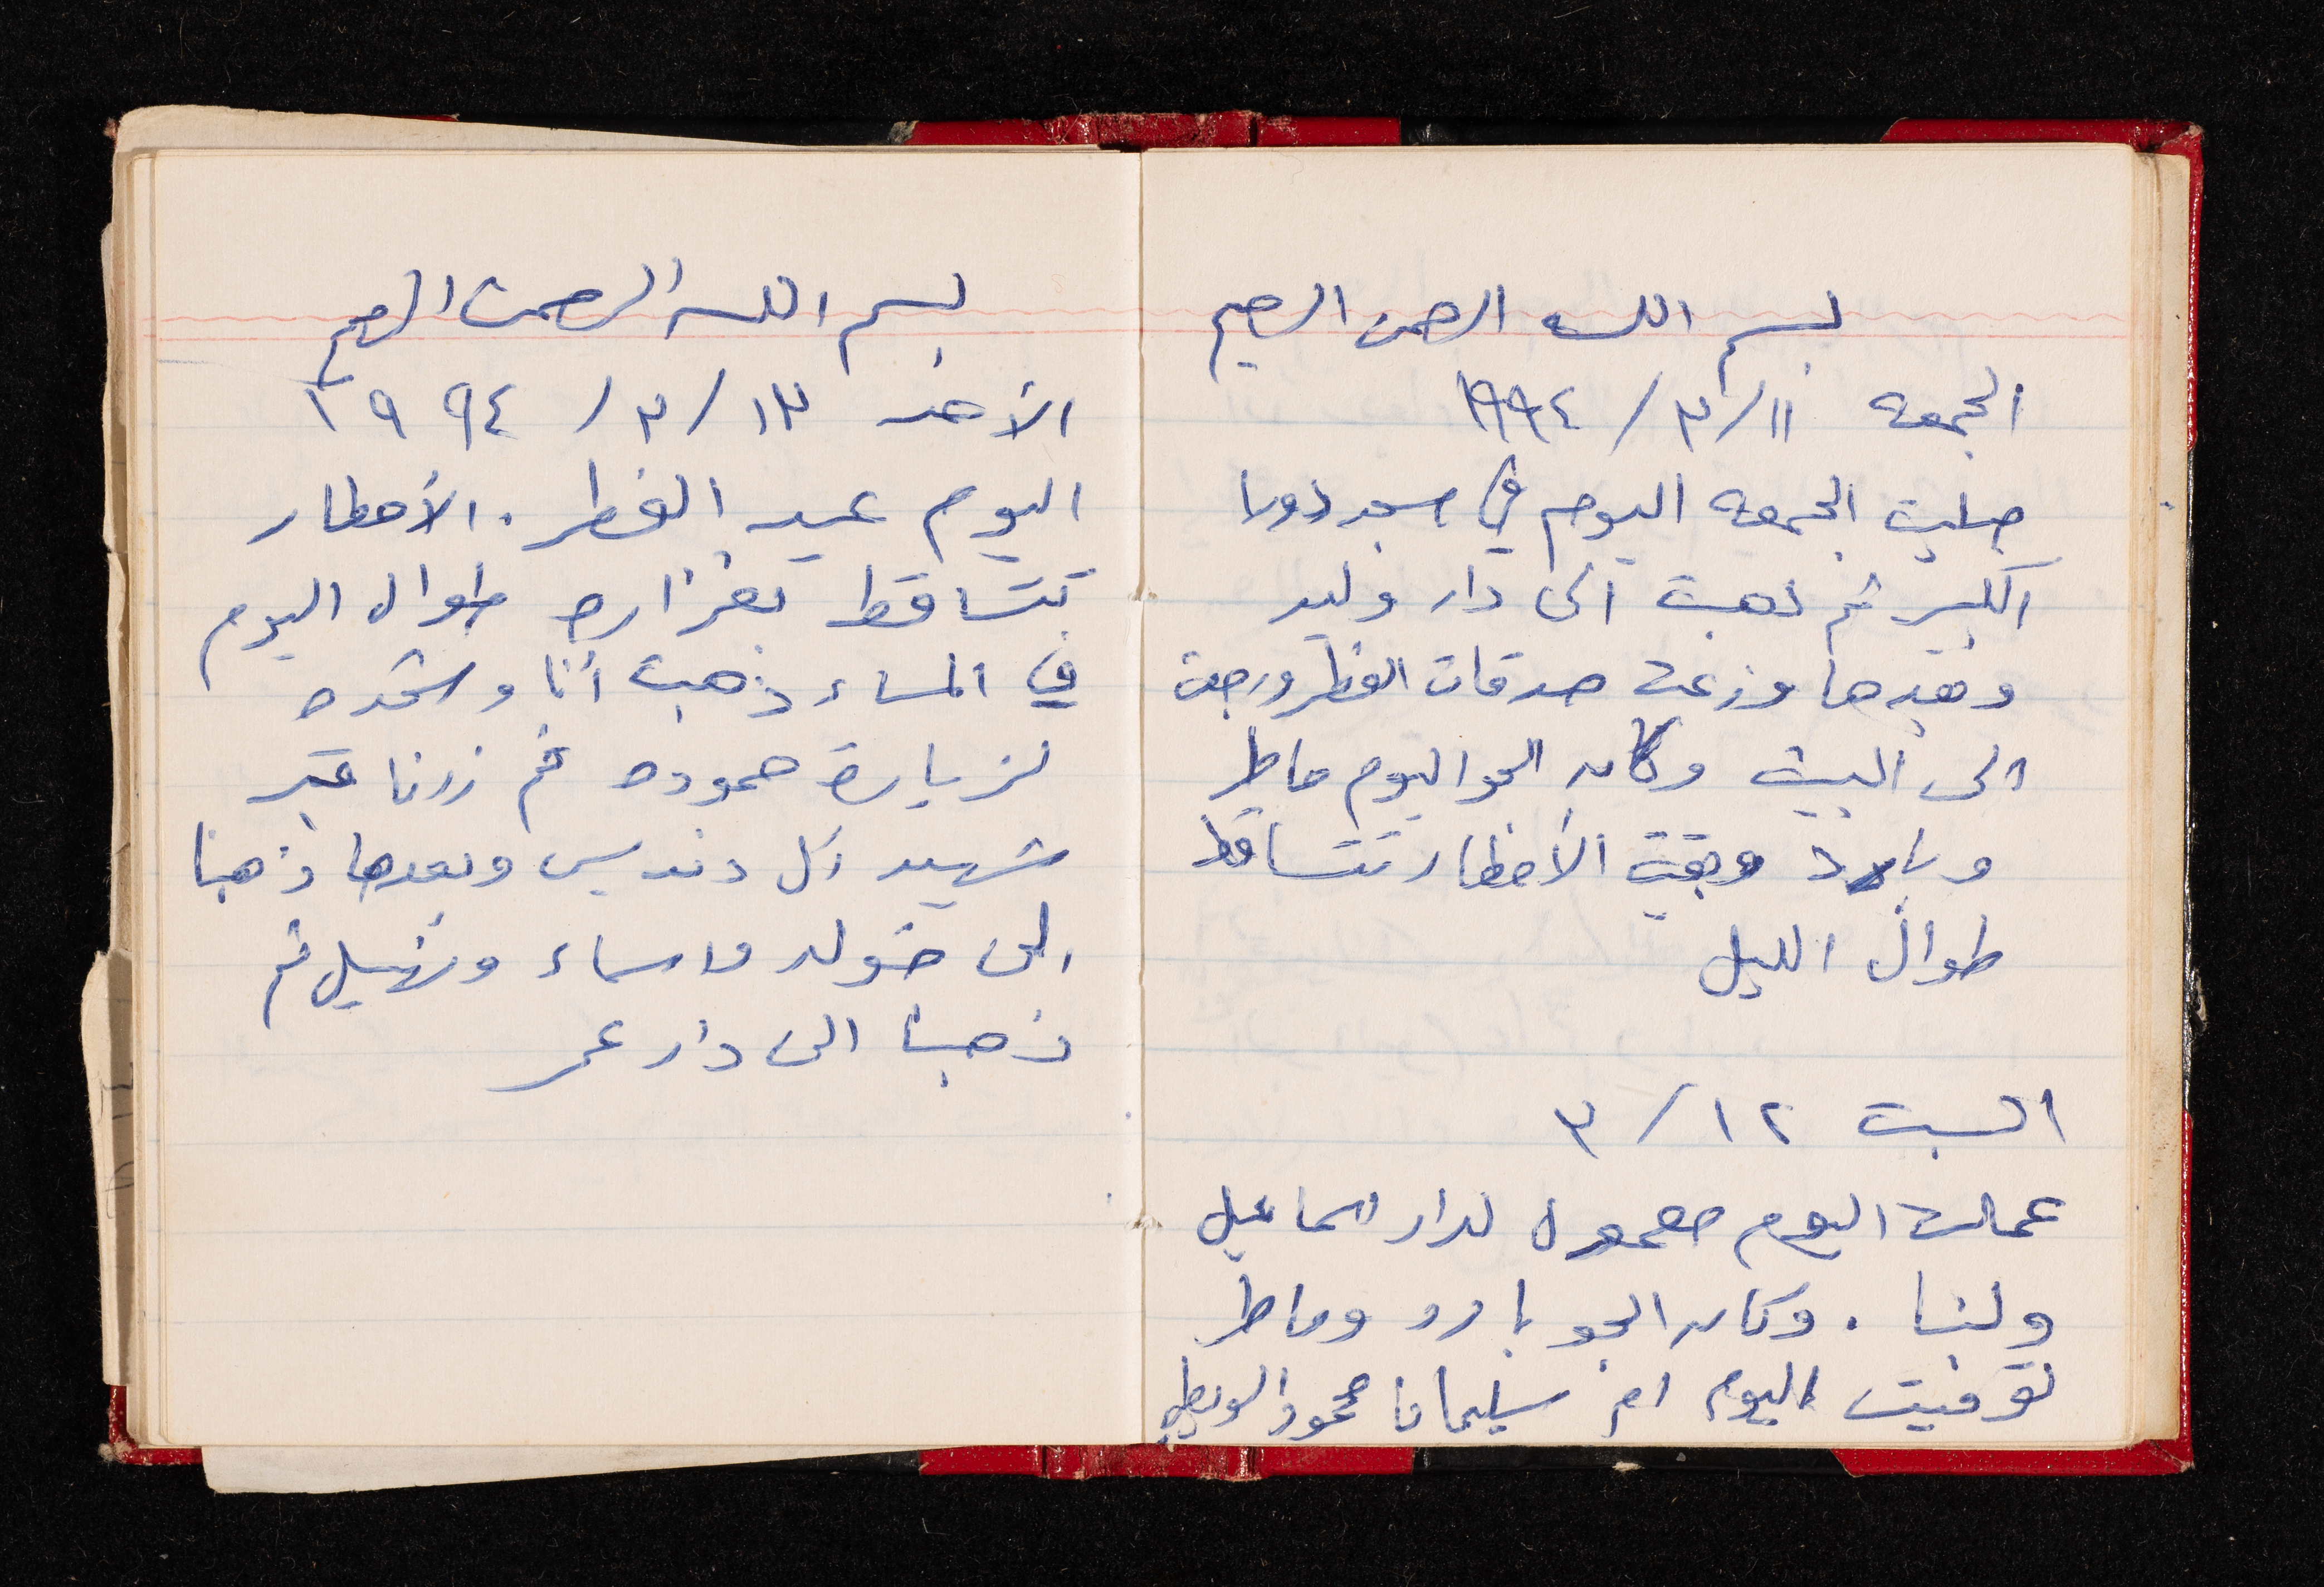 بسم الله الرحمن الرحيم
الجمعه ١١/٣/١٩٩٤
صليت الجمعه اليوم في مسجد دورا
الكبير ثم ذهبت الى دار وليد
وبعدها وزعت صدقات الفطر ورجعت
الى البيت وكان الجو اليوم ماطر
وبارد وبقيت الأمطار تتساقط
طوال الليل
السبت ١٢/٣
عملت اليوم معمول لدار اسماعيل
ولنا . وكان الجو بارد وماطر
توفيت اليوم ام سليمان محمود
بسم الله الرحمن الرحيم
الأحد ١٣/٣/١٩٩٤
اليوم عيد الفطر . الأمطار
تتساقط بغزاره طوال اليوم
في المساء ذهبت أنا وشحده
لزيارة حموده ثم زرنا قبر
شهيد آل دنديس وبعدها ذهبنا
الى خوله واسماء ونهيل ثم
ذهبنا الى دار عمر